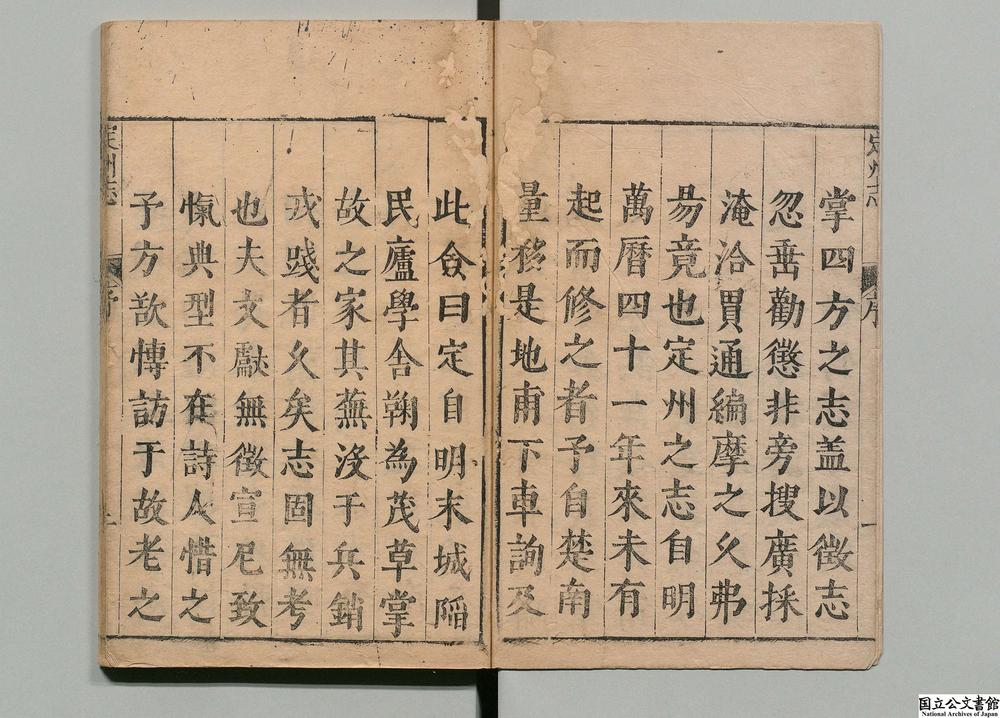 掌四方之志盖以徵志
忽埀勸懲非旁搜廣採
淹洽買通編摩之久弗
昜竟也定州之志自明
萬曆四十一年來未有
起而修之者予自楚南
量移是地甫下車詢及
此僉曰定自明末城陷
民廬學舍鞠為茂草掌
故之家其蕪沒于兵銷
戎踐者久矣志固無考
也夫文獻無徵宣尼致
愾典型不在詩人惜之
予方歆慱訪于故老之
定州志
序
一
定州志
序
国立公文書館
National Archives of Japan